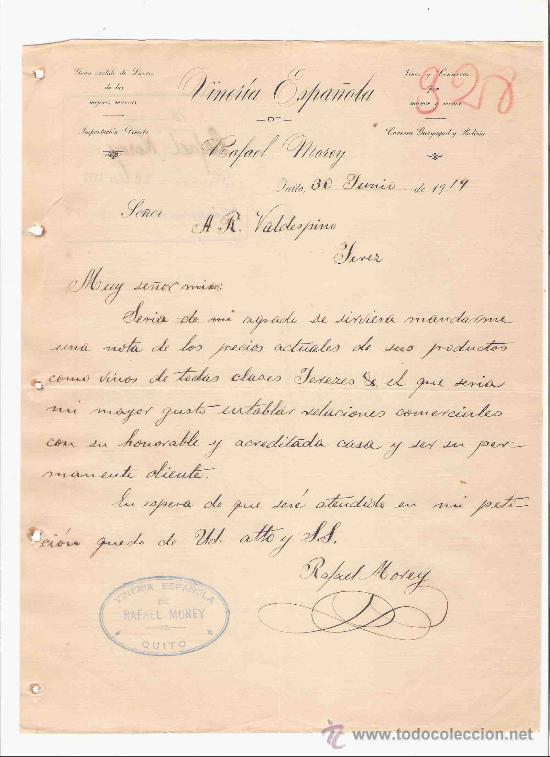 Gran
de
de las
mejores marcas
Importación Directa
Vinería Española
DE
Rafael Morey
Vinos y Conservas
por
mayor y menor
Carrera Guayaquil y Bolivia
928
Quito, 30 Junio de 1919
Señor
A. R. Valdespino
Jerez
Muy señor mio:
Seria de mi agrado se sirviera mandarme
una nota de los precios actuales de sus productos
como vinos de todas clases Jerezes & el que seria
mi mayor gusto entablar relaciones comerciales
con su honorable y acreditada casa y ser su per-
manente cliente.
En espera de que seré atendido en mi peti-
ción quedo de Ud. atto y S.S.
Rafael Morey
VINERIA ESPAÑOLA
DE
RAFAEL MOREY
QUITO
todocoleccion
www.todocoleccion.net